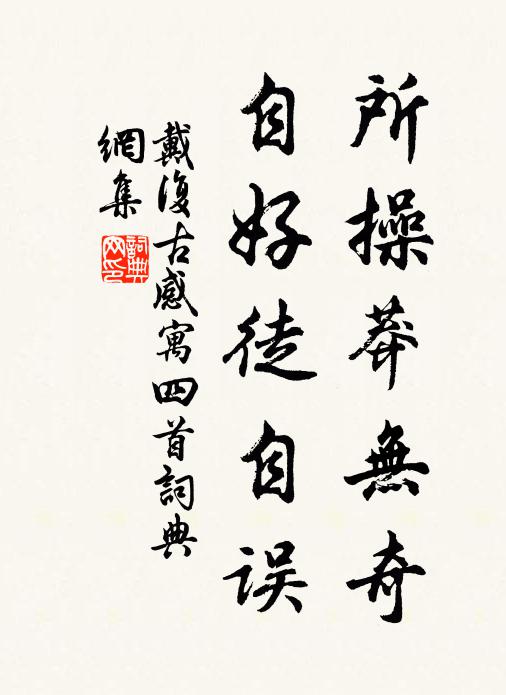 所操莽無奇
自好徒自误
戴復古感寓四首詞典
網集
詞典网印